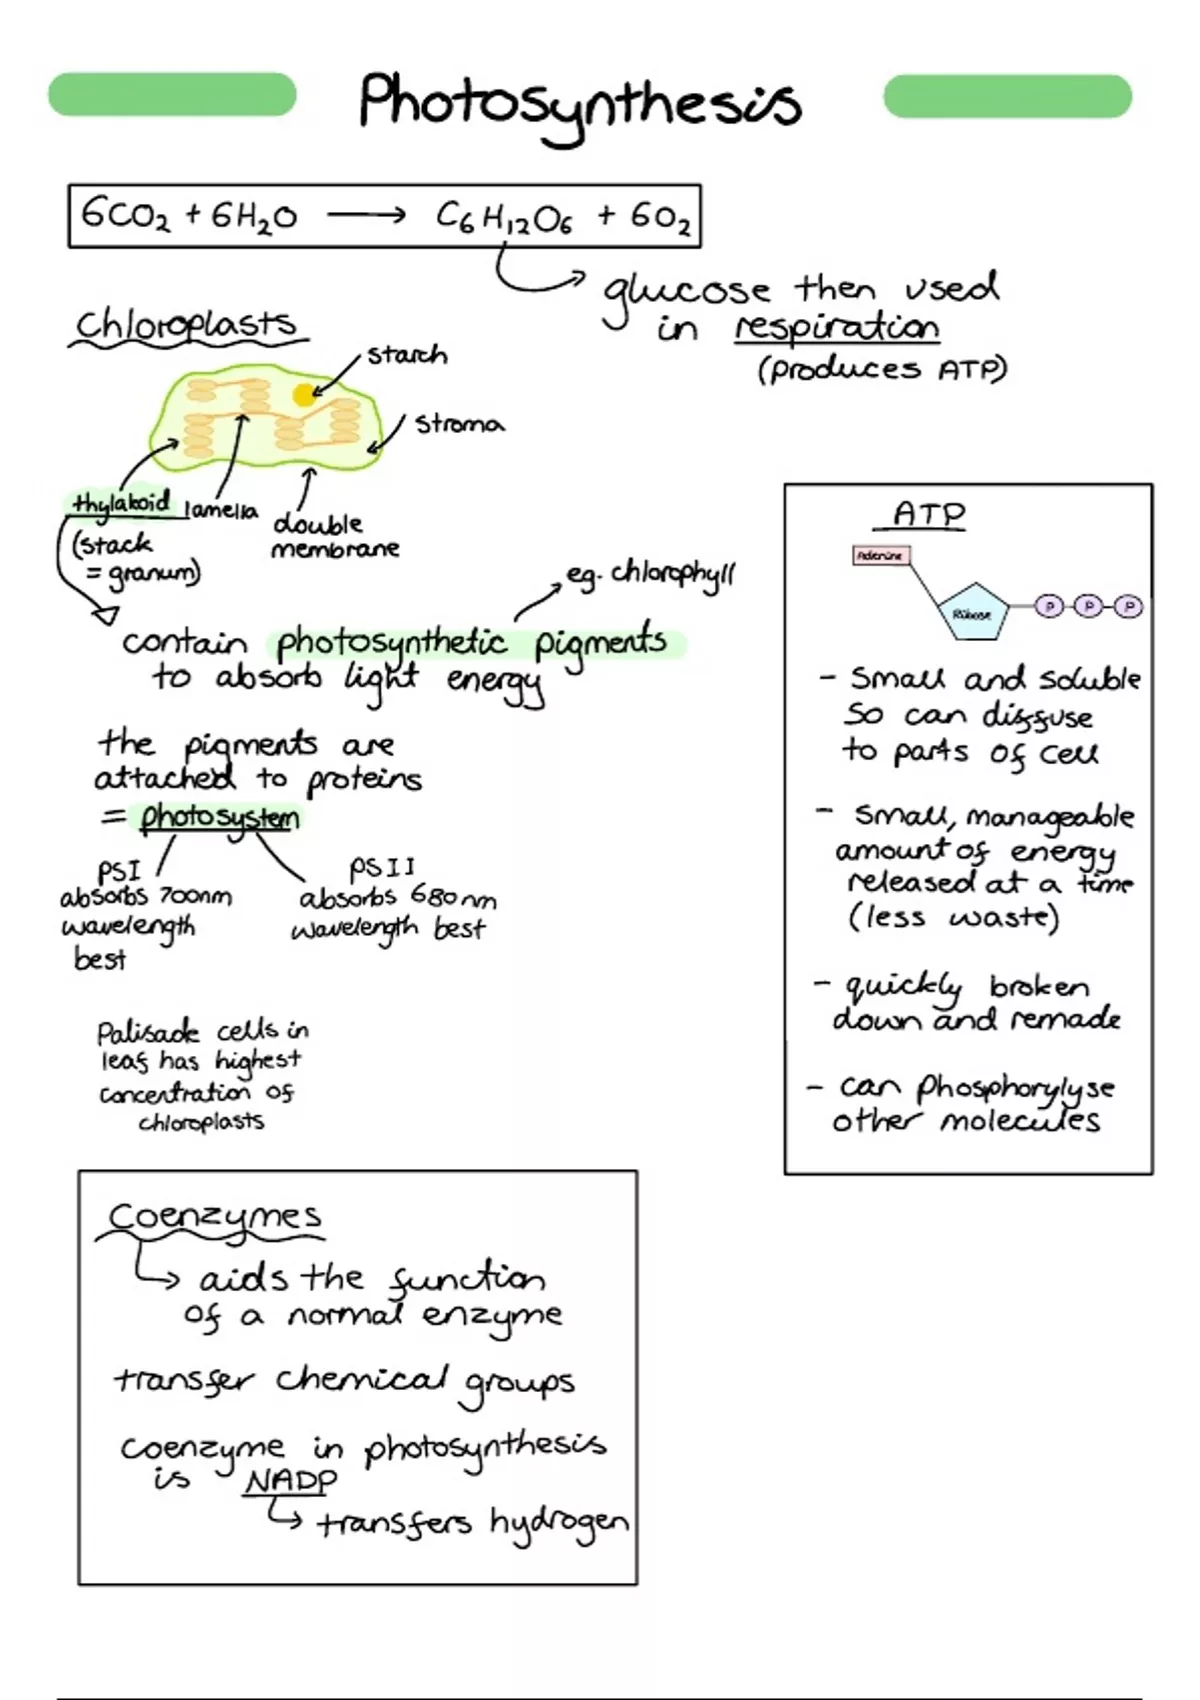 Photosynthesis
6CO₂ + 6H₂O ⟶ C₆H₁₂O₆ + 6O₂
glucose then used
in respiration
(produces ATP)
Chloroplasts
starch
stroma
thylakoid
(stack
= granum)
lamella
double
membrane
eg. chlorophyll
contain photosynthetic pigments
to absorb light energy
the pigments are
attached to proteins
= photosystem
PSI
absorbs 700nm
wavelength
best
PSII
absorbs 680nm
wavelength best
Palisade cells in
leaf has highest
concentration of
chloroplasts
ATP
Adenine
Ribose
P
P
P
- Small and soluble
so can diffuse
to parts of cell
- small, manageable
amount of energy
released at a time
(less waste)
- quickly broken
down and remade
- can phosphorylyse
other molecules
Coenzymes
aids the function
of a normal enzyme
transfer chemical groups
coenzyme in photosynthesis
is NADP
transfers hydrogen